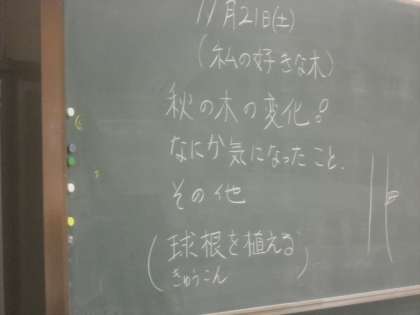 11月21日(土)
(私の好きな木)
秋の木の変化。
なにか気になったこと、
その他
(球根を植える)
きゅうこん